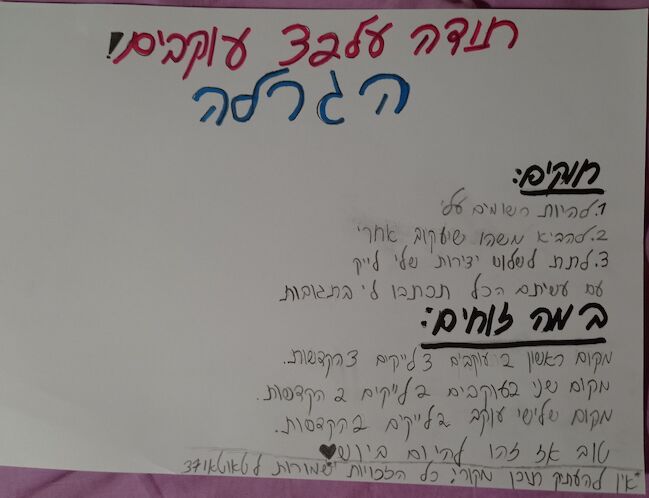 תודה על 23 עוקבים!
הגרלה
חוקים:
1. להיות רשומים עלי
2. להביא משהו שיעקוב אחרי
3. לתת לשלוש יצירות שלי לייק
עם עשיתם הכל תכתבו לי בתגובות
במה זוכים:
מקום ראשון 2 עוקבים 3 לייקים 3 הקדשות.
מקום שני 2 עוקבים 2 לייקים 2 הקדשות.
מקום שלישי עוקב 2 לייקים 2 הקדשות.
טוב אז זהו להיום ביוש♥
*אין להעתיק תוכן מקורי: כל הזכויות שמורות